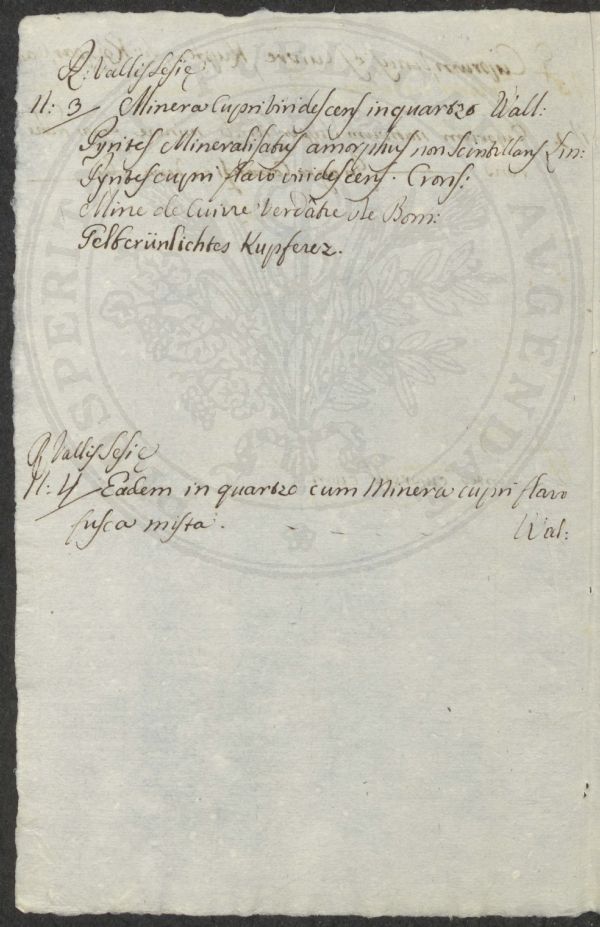 R: Vallis Sesię
N: 3 Minera Cupri viridescens in quarozo Wall:
Pyrites Mineralisatus amorphus non Scintillans Lin:
Pyrites cupri flavo viridescens. Crons:
Mine de Cuivre Verdâtre de Bom:
Gelbgrünlichtes Kupferez.
R Vallis Sesię
N: 4 Eadem in quarozo cum Minera cupri flavo
fusca mista. Wal:
SPERITA
AVGENDA